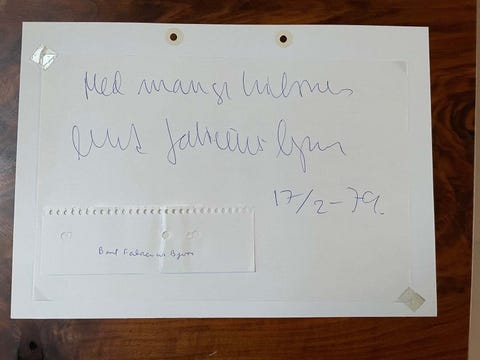 Med mange hilsner
Bent Fabricius Bjerre
17/2-79.
Bent Fabricius Bjerre